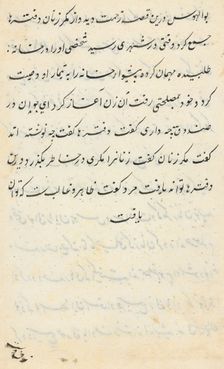 بوالهوس درین قصد زحمت دید و از مکر زنان دفترها
جمع کرد وقتی در شهری رسید شخصی او را در خانه
طلبیده مهمان کرده بیشتر خانه را به تیمار او وصیت
کرد و خود بمصلحتی رفت آن زن آغاز کرد ای جوان در
صندوق چه داری گفت دفترها گفت چه نوشته اند
گفت مکر زنان گفت زنانرا مکری در خاطر بگذرد درین
دفترها تواند یافت مرد گفت ظاهر و غالب است که توان
یافت